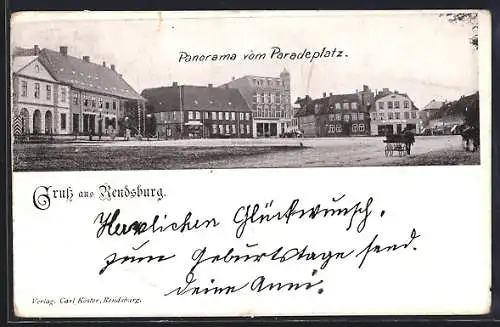 Panorama vom Paradeplatz.
Gruß aus Rendsburg.
Herzlichen Glückwünsch,
zum Geburtstage send.
deine Anni.
Verlag. Carl Köster, Rendsburg.